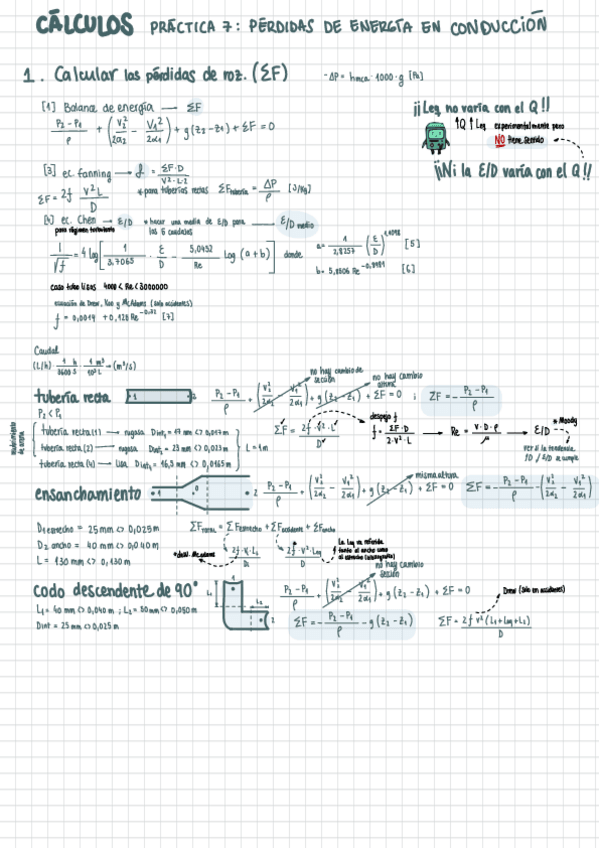 CÁLCULOS PRÁCTICA 7: PÉRDIDAS DE ENERGÍA EN CONDUCCIÓN
1. Calcular las pérdidas de roz. (ΣF)
-ΔP = hmca·1000·g [Pa]
[1] Balance de energía → ΣF
(P2-P1)/ρ + (V2²/2α2 - V1²/2α1) + g(z2-z1) + ΣF = 0
¡¡Leq no varía con el Q!!
↑Q ↑Leq experimentalmente pero
NO tiene sentido
¡¡Ni la E/D varía con el Q!!
[3] ec. Fanning → f = ΣF·D/V²·L·2
ΣF = 2f V²L/D
*para tuberías rectas ΣFtubería = ΔP/ρ [J/kg]
[4] ec. Chen → E/D *hacer una media de E/D para los 5 caudales → E/D medio
para régimen turbulento
1/√f = 4 log[1/3,7065 · E/D - 5,0452/Re log (a+b)] donde
a = 1/2,8257 (E/D)^1,1098 [5]
b = 5,8506 Re^-0,8981 [6]
caso tubo lisos 4000 < Re < 3000000
ecuación de Drew, Koo y McAdams (solo accidentes)
f = 0,0014 + 0,125 Re^-0,32 [7]
Caudal
(L/h) · 1 h/3600 s · 1 m³/10³ L → (m³/s)
no hay cambio de sección
no hay cambio
tubería recta 1 2
(P2-P1)/ρ + (V2²/2α2 - V1²/2α1) + g(z2-z1) + ΣF = 0 ; ΣF = - (P2-P1)/ρ
P2 < P1
tubería recta (1) → rugosa Dint1 = 17 mm <> 0,017 m
tubería recta (2) → rugosa Dint2 = 23 mm <> 0,023 m
tubería recta (4) → Lisa Dint4 = 16,5 mm <> 0,0165 m
L = 1m
ΣF = 2f·V²·L/D
despejo f
f = ΣF·D/2·V²·L → Re = V·D·ρ/μ → E/D
* Moody
ver si la tendencia
f D / E/D se cumple
ensanchamiento 1 0 2
misma altura
(P2-P1)/ρ + (V2²/2α2 - V1²/2α1) + g(z2-z1) + ΣF = 0
ΣF = - (P2-P1)/ρ - (V2²/2α2 - V1²/2α1)
D1 estrecho = 25 mm <> 0,025 m
D2 ancho = 40 mm <> 0,040 m
L = 130 mm <> 0,130 m
ΣFTOTAL = ΣFestrecho + ΣFaccidente + ΣFancho
2f·V·L1/D1
2f·V²·Leq/D
La Leq va referida
no hay cambio
sección
codo descendente de 90°
L1 = 40 mm <> 0,040 m ; L2 = 50 mm <> 0,050 m
Dint = 25 mm <> 0,025 m
L1 1 L2 2
(P2-P1)/ρ + (V2²/2α2 - V1²/2α1) + g(z2-z1) + ΣF = 0
ΣF = - (P2-P1)/ρ - g(z2-z1)
Drew (solo en accidentes)
ΣF = 2f V²(L1+Leq+L2)/D